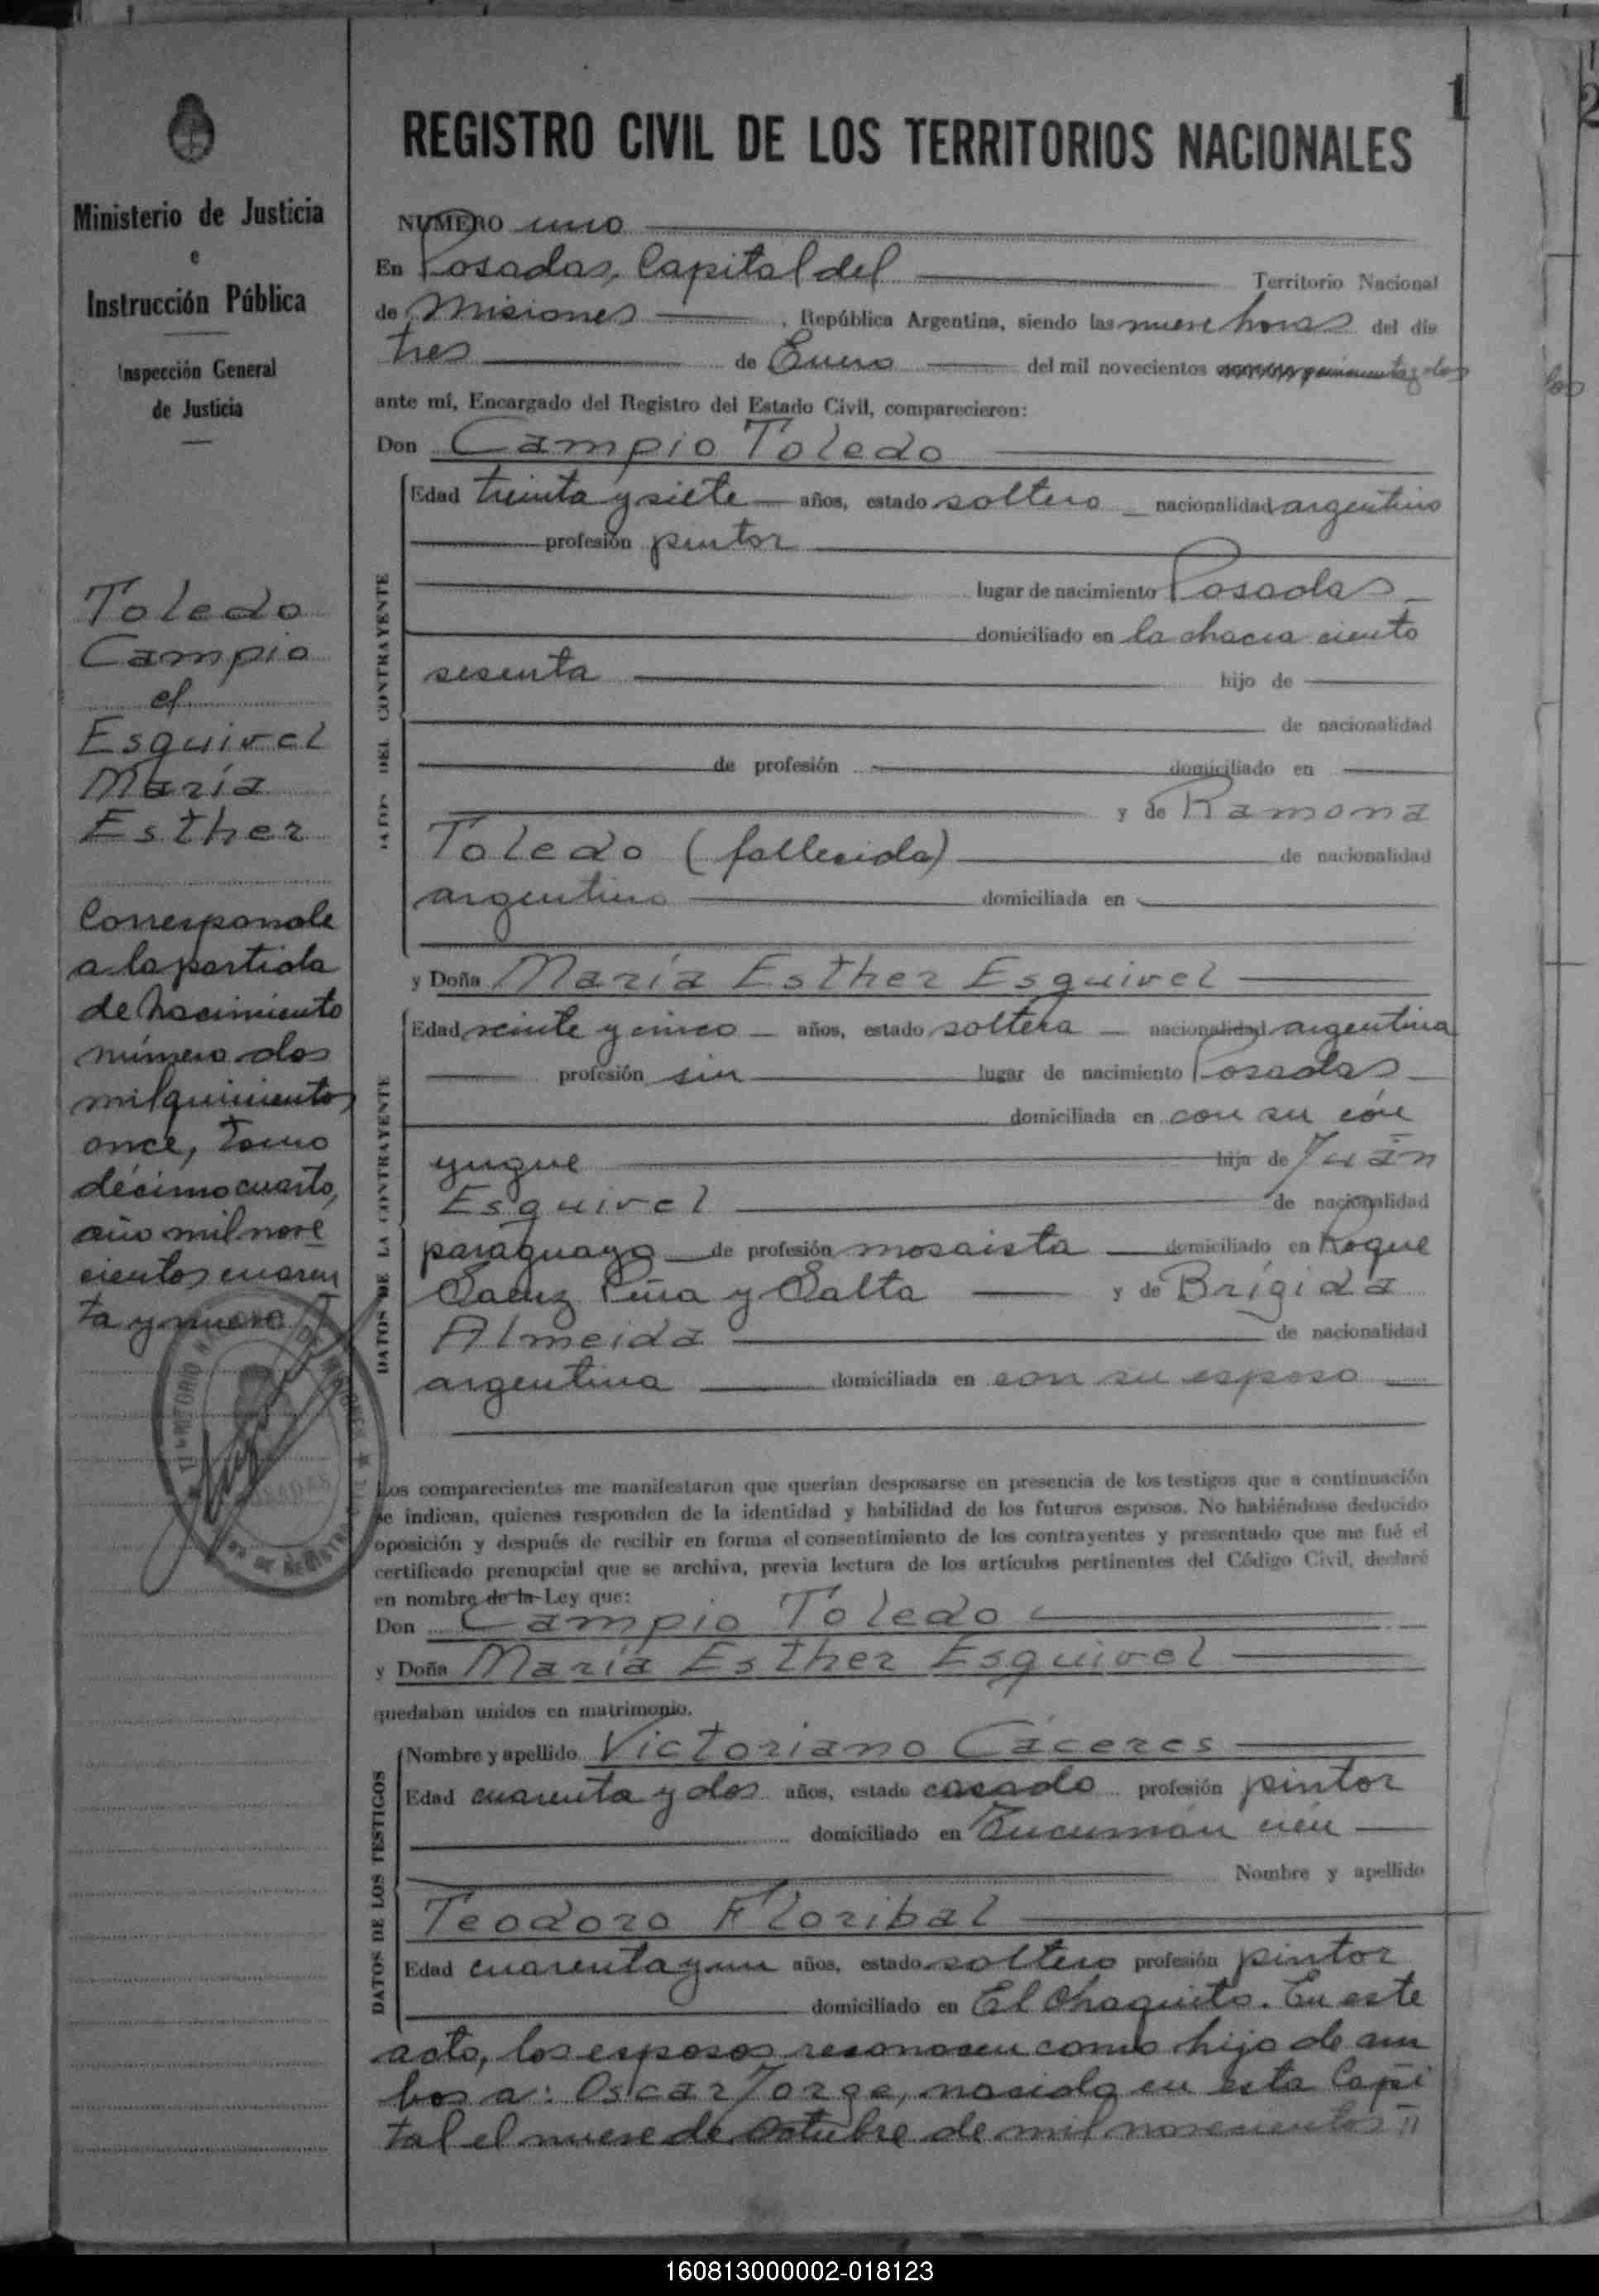 1
REGISTRO CIVIL DE LOS TERRITORIOS NACIONALES
Ministerio de Justicia
e
Instrucción Pública
Inspección General
de Justicia
Toledo
Campio
c/
Esquivel
María
Esther
Corresponde
a la partida
de Nacimiento
número dos
mil quinientos
once, tomo
décimo cuarto,
año mil nove
cientos cuaren
ta y nueve.
NUMERO uno
En Posadas, Capital del Territorio Nacional
de Misiones , República Argentina, siendo las nueve horas del día
tres de Enero del mil novecientos cincuenta y dos
ante mí, Encargado del Registro del Estado Civil, comparecieron:
Don Campio Toledo
DATOS DEL CONTRAYENTE
Edad treinta y siete años, estado soltero nacionalidad argentino
profesión pintor
lugar de nacimiento Posadas
domiciliado en la chacra ciento
sesenta hijo de
de nacionalidad
de profesión domiciliado en
y de Ramona
Toledo (fallecida) de nacionalidad
argentina domiciliada en
y Doña María Esther Esquivel
DATOS DE LA CONTRAYENTE
Edad veinte y cinco años, estado soltera nacionalidad argentina
profesión sin lugar de nacimiento Posadas
domiciliada en con su cón
yugue hija de Juan
Esquivel de nacionalidad
paraguayo de profesión mosaista domiciliado en Roque
Saenz Peña y Salta y de Brígida
Almeida de nacionalidad
argentina domiciliada en con su esposo
Los comparecientes me manifestaron que querían desposarse en presencia de los testigos que a continuación
se indican, quienes responden de la identidad y habilidad de los futuros esposos. No habiéndose deducido
oposición y después de recibir en forma el consentimiento de los contrayentes y presentado que me fué el
certificado prenupcial que se archiva, previa lectura de los artículos pertinentes del Código Civil, declaré
en nombre de la Ley que:
Don Campio Toledo
y Doña María Esther Esquivel
quedaban unidos en matrimonio.
DATOS DE LOS TESTIGOS
Nombre y apellido Victoriano Cáceres
Edad cuarenta y dos años, estado casado profesión pintor
domiciliado en Tucumán cién
Nombre y apellido
Teodoro Floribal
Edad cuarenta y un años, estado soltero profesión pintor
domiciliado en El Chaquito. En este
acto, los esposos reconocen como hijo de am
bos a: Oscar Jorge, nacido en esta Capi
tal el nueve de Octubre de mil novecientos
160813000002-018123